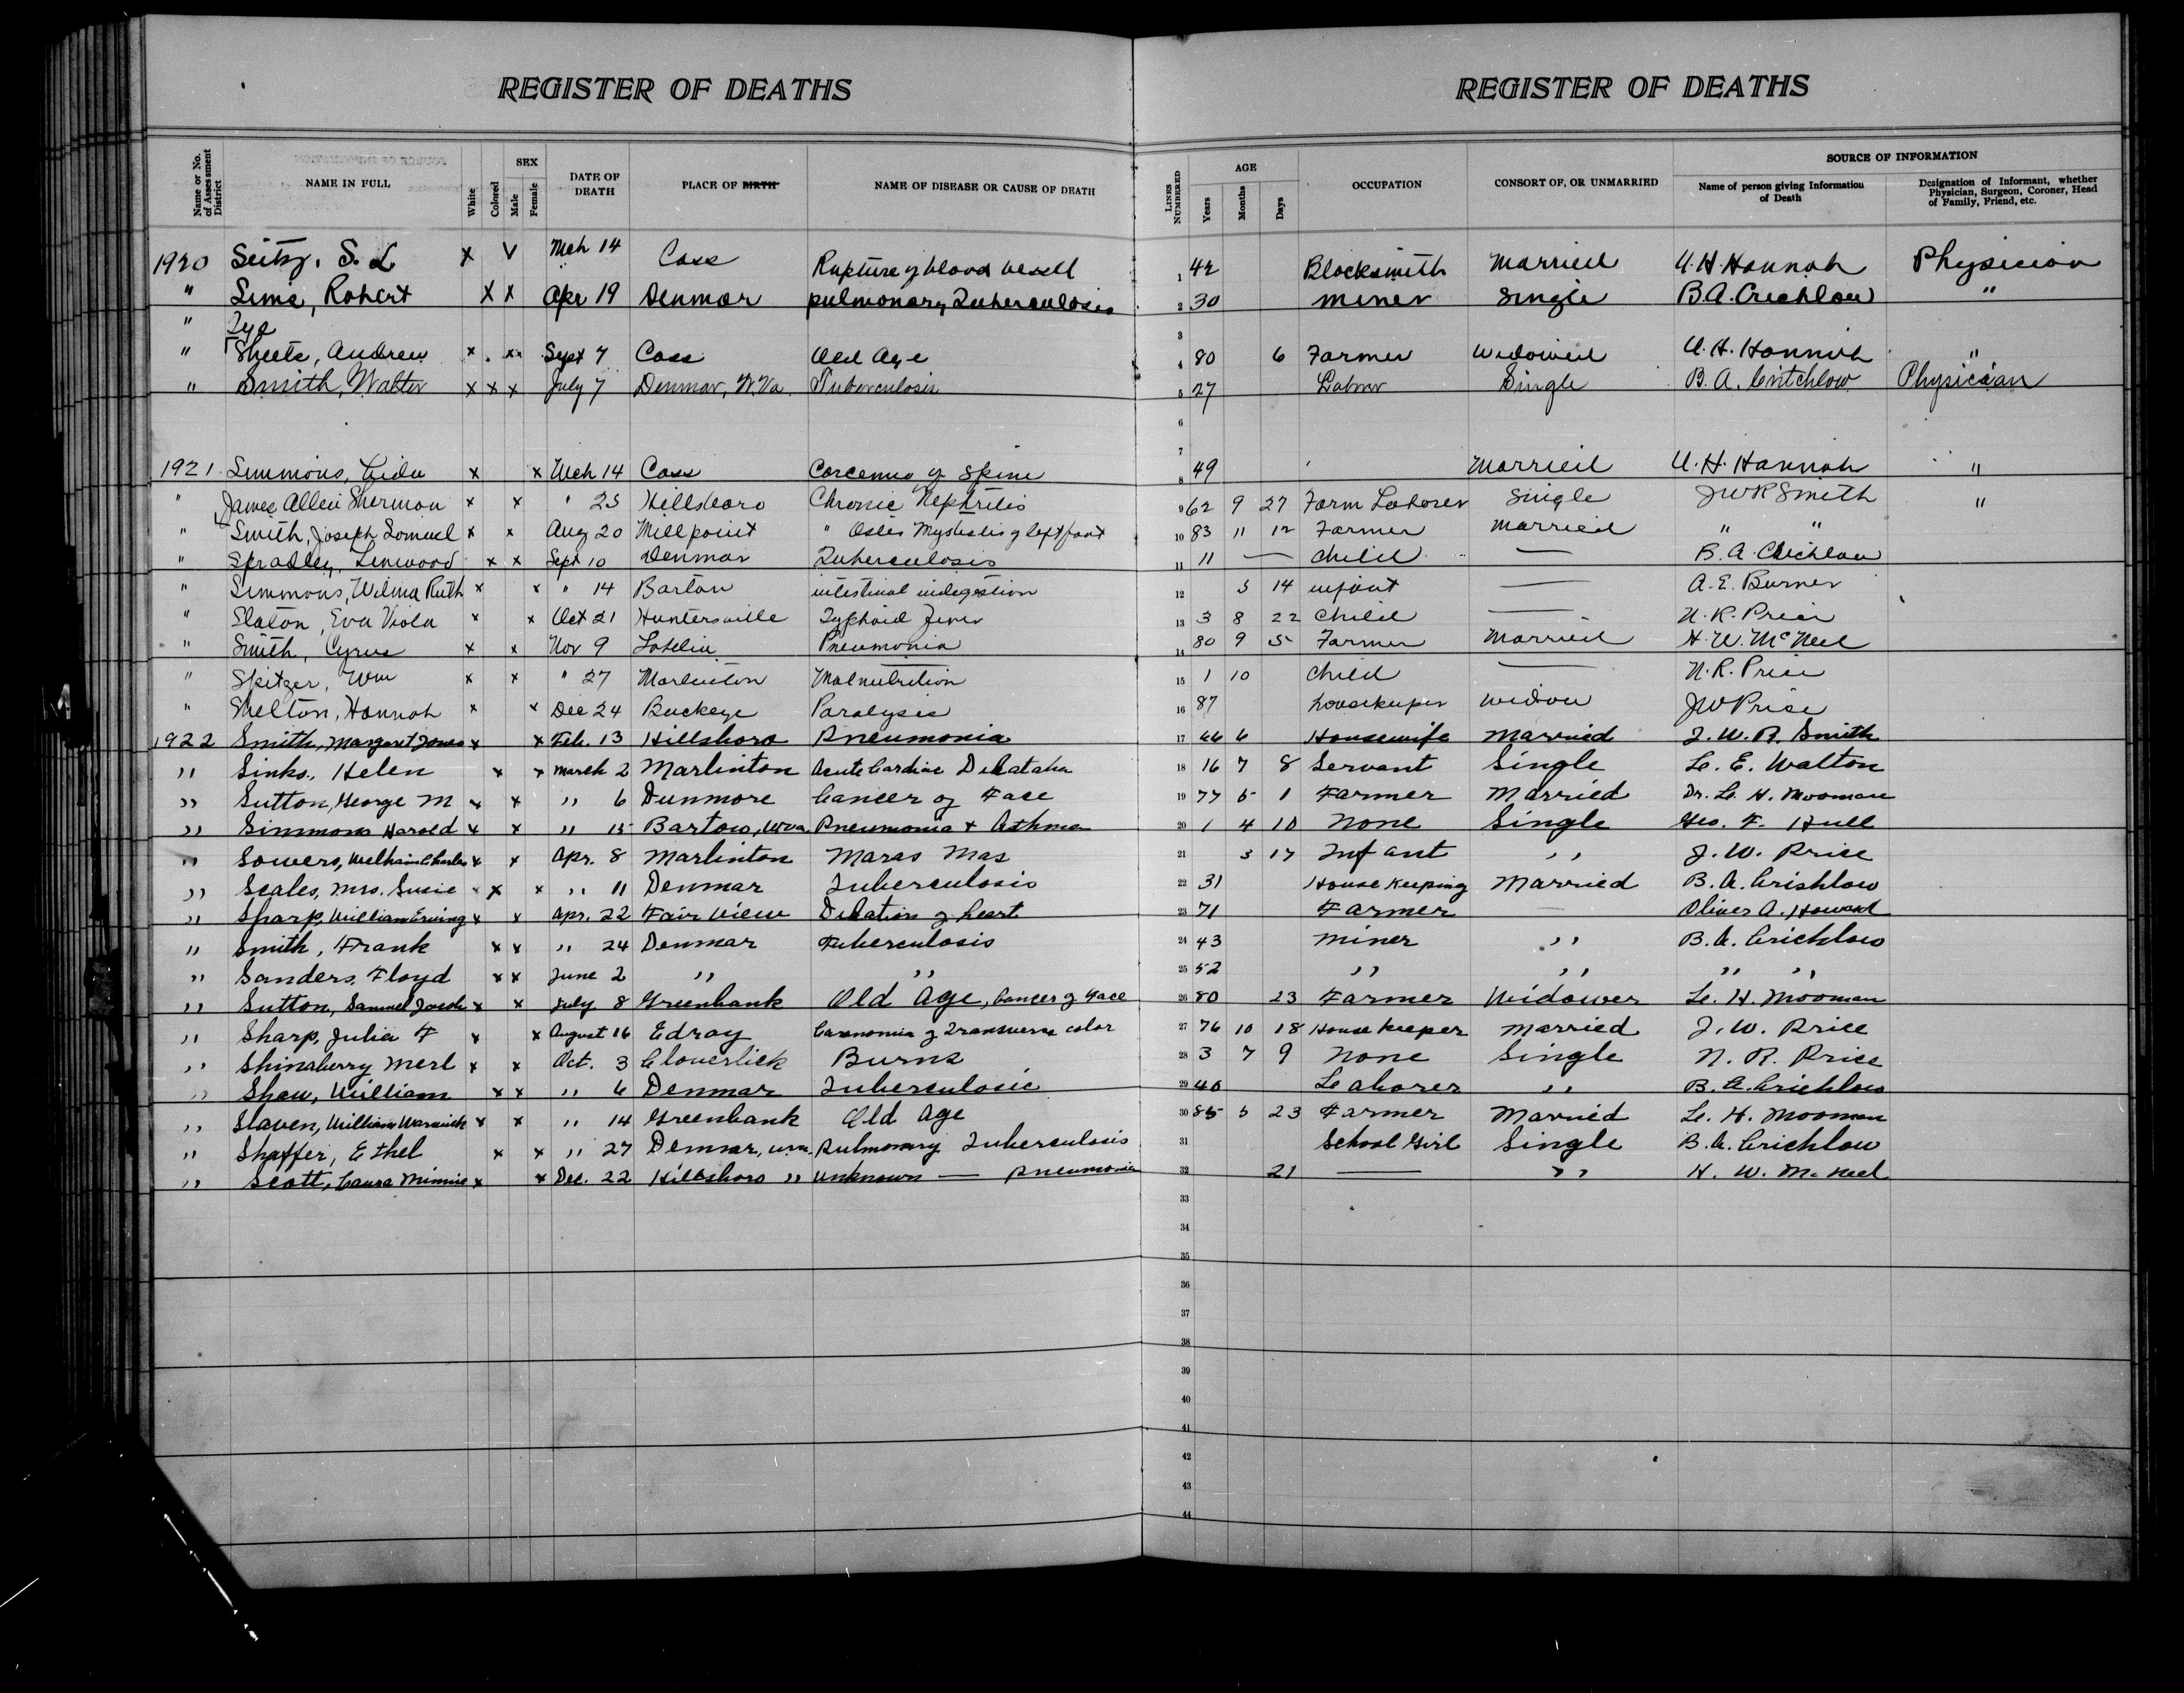 REGISTER OF DEATHS
REGISTER OF DEATHS
Name or No. of Assessment District NAME IN FULL White Colored SEX Male Female DATE OF DEATH PLACE OF BIRTH NAME OF DISEASE OR CAUSE OF DEATH LINES NUMBERED AGE Years Months Days OCCUPATION CONSORT OF, OR UNMARRIED SOURCE OF INFORMATION Name of person giving Information of Death Designation of Informant, whether Physician, Surgeon, Coroner, Head of Family, Friend, etc.
1920 Seitz, S. L x v Mch 14 Cass Rupture of blood vesell 1 42 Blacksmith Married U. H. Hannah Physician
" Sims, Robert X x Apr 19 Denmar pulmonary Tuberculosis 2 30 miner Single B. A. Crichlow "
" 3
" Sheets, Andrew x x Sept 7 Cass Old Age 4 80 6 Farmer Widowed U. H. Hannah "
" Smith, Walter x x x July 7 Denmar, W.Va. Tuberculosis 5 27 Labor Single B. A. Critchlow Physician
6
7
1921 Simmons, Lida x x Mch 14 Cass Carcenna of Spine 8 49 Married U. H. Hannah "
" James Allen Sherman x x " 25 Hillsboro Chronic Nephritis 9 62 9 27 Farm Laborer Single J W R Smith "
" Smith, Joseph Samuel x x Aug 20 Millpoint " of left foot 10 83 11 12 Farmer Married " "
" Spradley, Linwood x x Sept 10 Denmar Tuberculosis 11 11 — child — B. A. Crichlow
" Simmons, Wilma Ruth x x " 14 Bartow intestinal indigestion 12 5 14 infant — A. E. Burner
" Slaton, Eva Viola x x Oct 21 Huntersville Typhoid Fever 13 3 8 22 Child — N. R. Price
" Smith, Cyrus x x Nov 9 Lobelia Pneumonia 14 80 9 5 Farmer Married H. W. McNeel
" Spitzer, Wm x x " 27 Marlinton Malnutrition 15 1 10 Child — N. R. Price
" Shelton, Hannah x x Dec 24 Buckeye Paralysis 16 87 housekeeper widow J W Price
1922 Smith, Margaret Jones x x Feb. 13 Hillsboro Pneumonia 17 66 6 Housewife Married J. W. R. Smith
,, Sinks, Helen x x March 2 Marlinton Acute Cardiac 18 16 7 8 Servant Single L. E. Walton
,, Sutton, George M x x ,, 6 Dunmore Cancer of Face 19 77 5 1 Farmer Married Dr. L. H. Mooman
,, Simmons Harold x x ,, 15 Bartow, Wva. Pneumonia + Asthma 20 1 4 10 None Single Geo. F. Hull
,, Sowers, William Charles x x Apr. 8 Marlinton Maras Mas 21 3 17 Infant ,, J. W. Price
,, Scales, Mrs. Susie x x ,, 11 Denmar Tuberculosis 22 31 House Keeping Married B. A. Crishlow
,, Sharp, William Ewing x x Apr. 22 Fair View Dilation of heart 23 71 Farmer — Oliver A. Howard
,, Smith, Frank x x ,, 24 Denmar Tuberculosis 24 43 Miner ,, B. A. Crichlow
,, Sanders, Floyd x x June 2 ,, ,, 25 52 ,, ,, ,, ,,
,, Sutton, Samuel Jacob x x July 8 Greenbank Old Age, Cancer of Face 26 80 23 Farmer Widower L. H. Mooman
,, Sharp, Julia F x x August 16 Edray of Transverse color 27 76 10 18 House Keeper Married J. W. Price
,, Shinaberry Merl x x Oct. 3 Cloverlick Burns 28 3 7 9 None Single N. R. Price
,, Shaw, William x x ,, 6 Denmar Tuberculosis 29 40 Laborer ,, B. A. Crichlow
,, Slaven, William Warwick x x ,, 14 Greenbank Old Age 30 85 5 23 Farmer Married L. H. Mooman
,, Shaffer, Ethel x x ,, 27 Denmar, wva. Pulmonary Tuberculosis 31 School Girl Single B. A. Crichlow
,, Scott, Laura Minnie x x Dec. 22 Hillsboro ,, Unknown — Pneumonia 32 21 — ,, H. W. McNeel
33
34
35
36
37
38
39
40
41
42
43
44